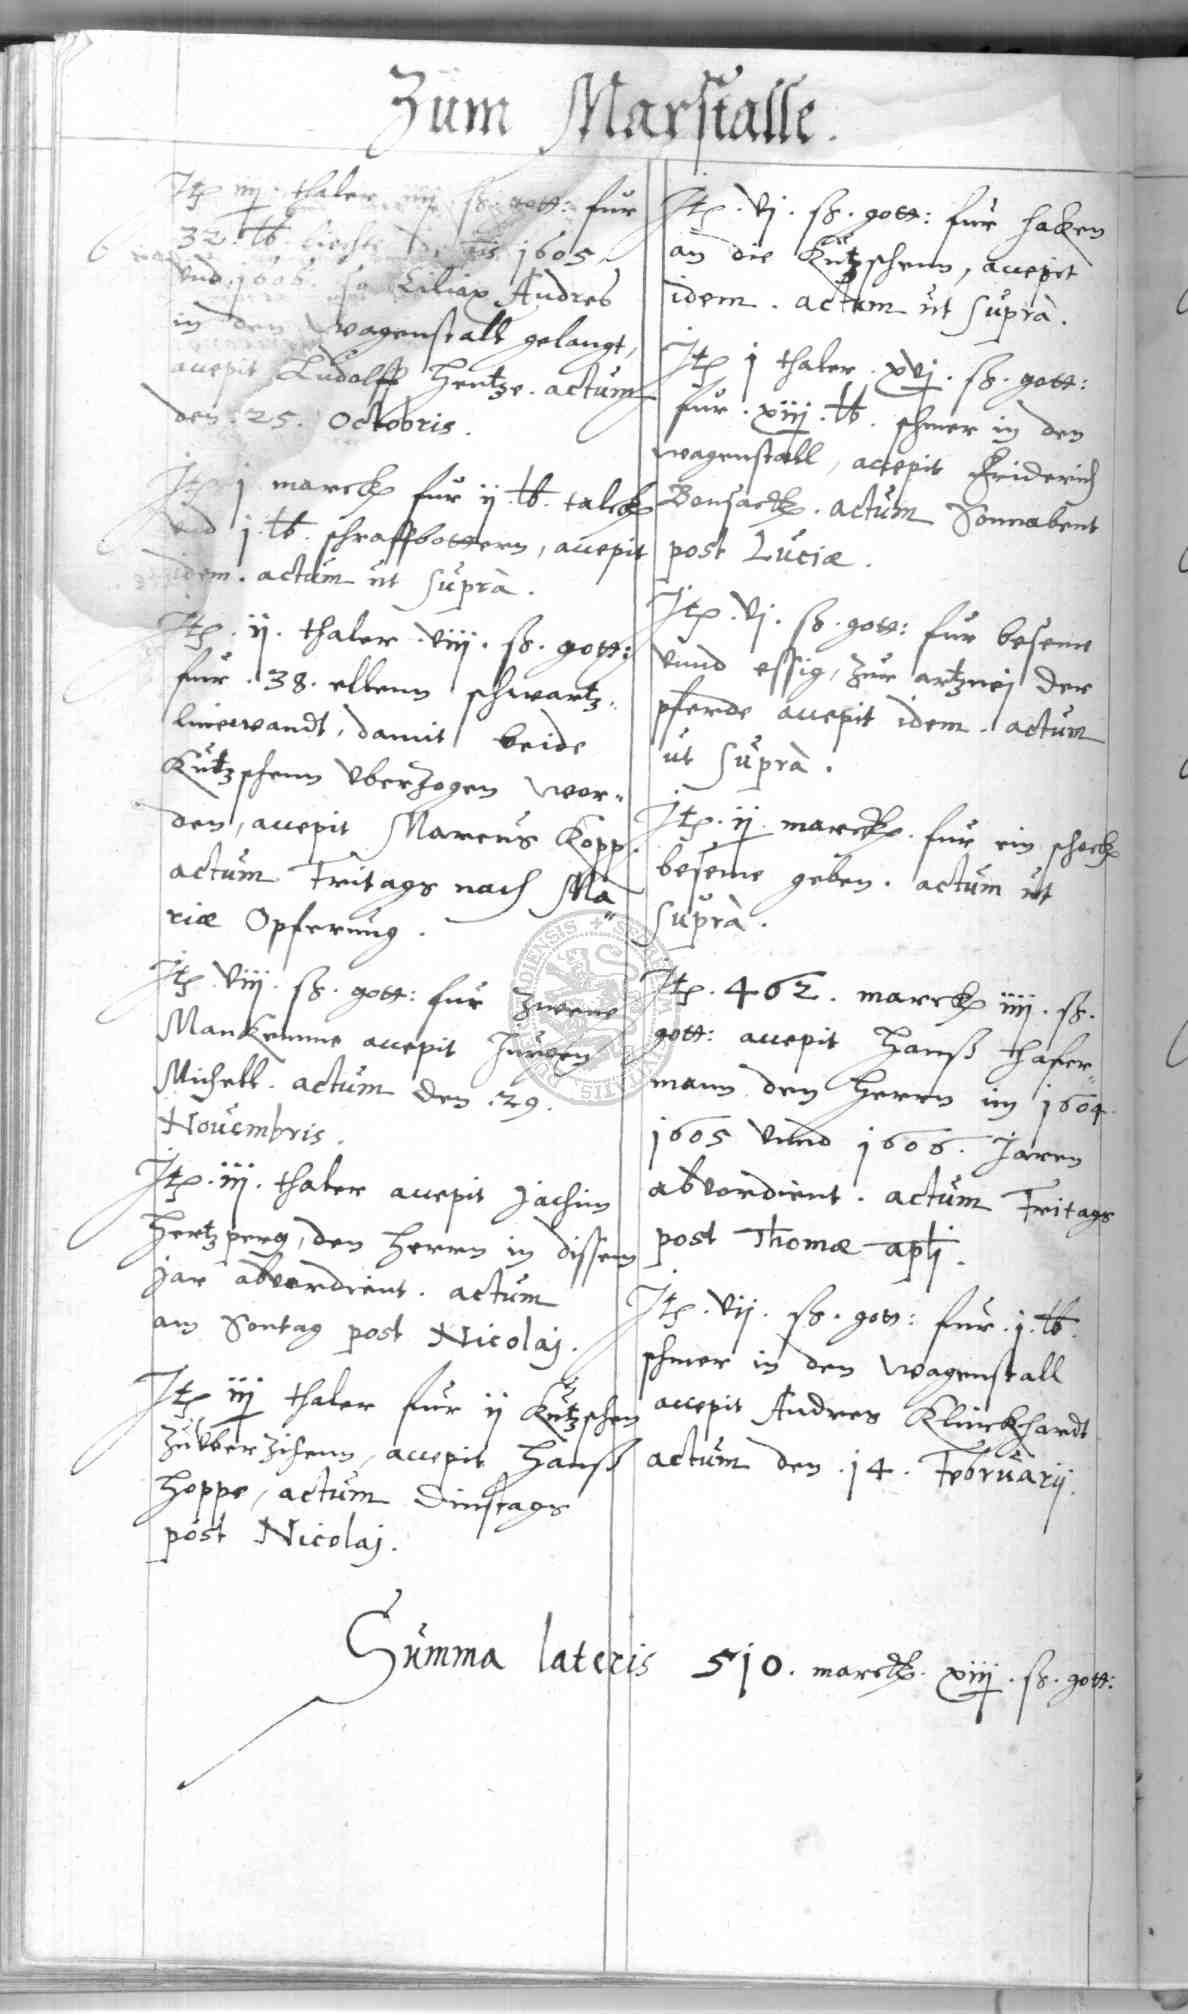 Zum Marstalle.
Itp iiij thaler iiij ß. gott: fur
32. lb. liechte 1605
vnd 1606. so Ciliax Andres
in den wagenstall gelangt,
accepit Ludolff Hentze. actum
den 25. Octobris.
Itp j marck fur ij lb. talck
vnd j. lb. schraffbottern, accepit
idem. actum ut suprà.
Itp. ij. thaler viij. ß. gott:
fur .38. ellenn schwartz-
linewandt, damit beide
Kutzschenn vberzogen wor-
den, accepit Marcus Kopp.
actum Fritags nach Ma-
riæ Opferung.
Itp. viij. ß. gott: fur zweene
Mankemme accepit Jurgen
Michell. actum den .29.
Novembris.
Itp. iij. thaler accepit Jachim
Hertzperg, den herrn in dissem
jar abverdient. actum
am Sontag post Nicolaj.
Itp iij thaler fur ij Kutzschen
zuvberzihenn, accepit Hanß
Hoppe, actum Dinstags
post Nicolaj.
Itp. vj. ß. gott: fur haken
an die Kutzschenn, accepit
idem. actum ut suprà.
Itp j thaler xvj. ß. gott:
fur xiij. lb. schmer in den
wagenstall, accepit Friderich
Bonsack. actum Sonnabent
post Luciæ.
Itp. vj. ß. gott: fur beseme
vnnd essig, zur artznej der
pferde accepit idem. actum
ut suprà.
Itp. ij. marck. fur ein schock
beseme geben. actum ut
suprà.
Itp. 462. marck iiij. ß.
gott: accepit Hanß Hafer-
mann den herrn im 1604
1605 vnnd 1606. jaren
abverdient. actum Fritags
post Thomæ apli.
Itp. vij. ß. gott: fur .j. lb.
schmer in den wagenstall
accepit Andres Klinckhardt
actum den .14. Februarij.
Summa lateris 510. marck. xiij. ß. gott: